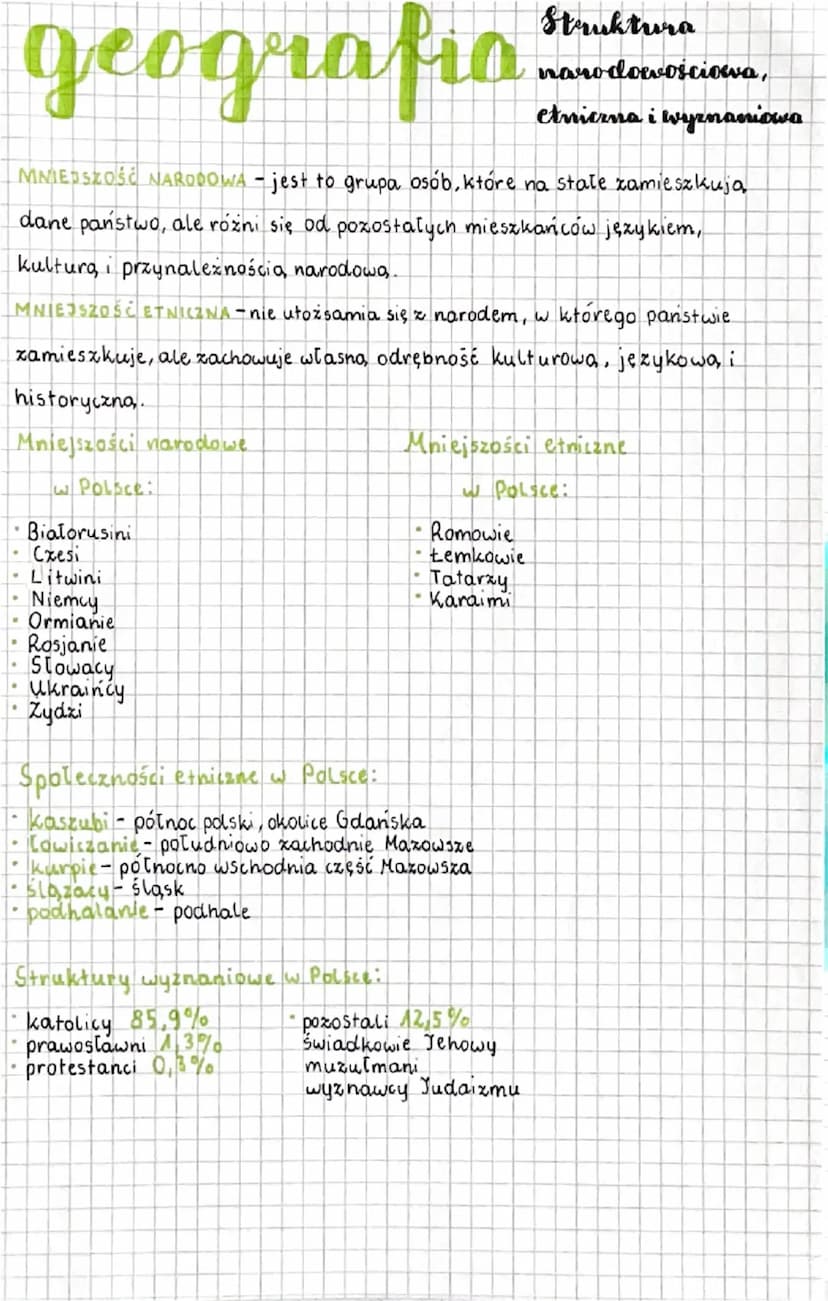 geografia
Struktura
narodowościowa,
etniczna i wyznaniowa
MNIEJSZOŚĆ NARODOWA - jest to grupa osób, które na stałe zamieszkują
dane państwo, ale różni się od pozostałych mieszkańców językiem,
kulturą i przynależnością narodową.
MNIEJSZOŚĆ ETNICZNA - nie utożsamia się z narodem, w którego państwie
zamieszkuje, ale zachowuje własną odrębność kulturową, językową i
historyczną.
Mniejszości narodowe
w Polsce:
• Białorusini
• Czesi
• Litwini
• Niemcy
• Ormianie
• Rosjanie
• Słowacy
• Ukraińcy
• Żydzi
Mniejszości etniczne
w Polsce:
• Romowie
• Łemkowie
• Tatarzy
• Karaimi
Społeczności etniczne w Polsce:
• kaszubi - północ polski, okolice Gdańska
• łowiczanie - południowo zachodnie Mazowsze
• kurpie - północno wschodnia część Mazowsza
• ślązacy - śląsk
• podhalanie - podhale
Struktury wyznaniowe w Polsce:
• katolicy 85,9%
• prawosławni 1,3%
• protestanci 0,3%
• pozostali 12,5%
świadkowie Jehowy
muzułmani
wyznawcy Judaizmu